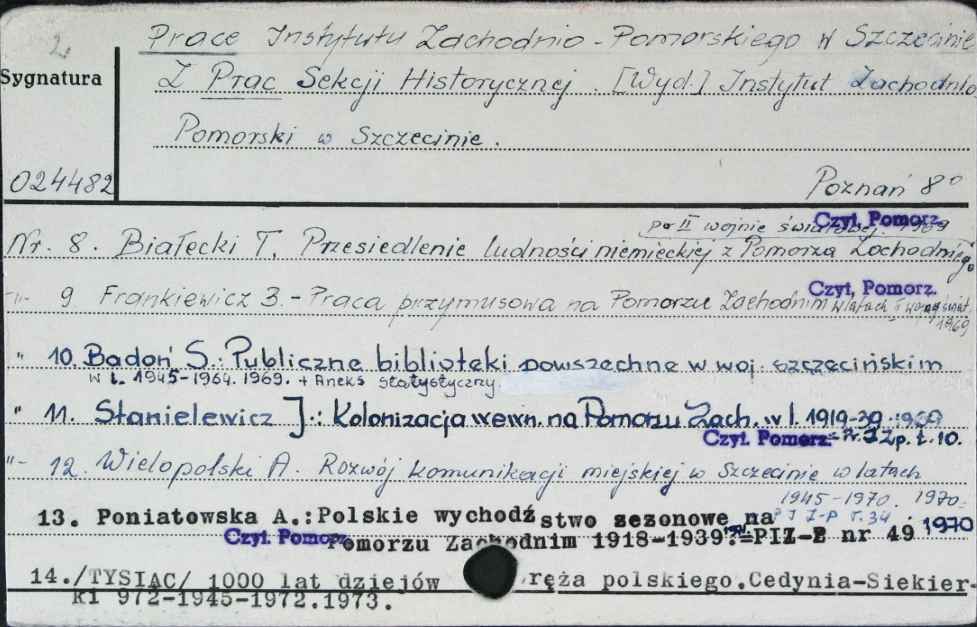 2
Prace Instytutu Zachodnio-Pomorskiego w Szczecinie
Sygnatura
Z Prac Sekcji Historycznej. [Wyd.] Instytut Zachodnio
Pomorski w Szczecinie.
024482
Poznań 8°
po II wojnie światowej. 1969
Czyt. Pomorz.
Nr. 8. Białecki T. Przesiedlenie ludności niemieckiej z Pomorza Zachodniego
Czyt. Pomorz.
-"- 9. Frankiewicz B. - Praca przymusowa na Pomorzu Zachodnim w latach
1969
" 10. Badoń S.: Publiczne biblioteki powszechne w woj. szczecińskim
w l. 1945-1964. 1969. + Aneks statystyczny.
" 11. Stanielewicz J.: Kolonizacja wewn. na Pomorzu Zach. w l. 1919-39 1969
Czyt. Pomorz. = Pr. IZp. t. 10.
-"- 12. Wielopolski A. Rozwój komunikacji miejskiej w Szczecinie w latach
1945-1970. 1970.
13. Poniatowska A.:Polskie wychodźstwo sezonowe na P I Z-P T. 34
Czyt. Pomorz. Pomorzu Zachodnim 1918-1939.=PIZ-P nr 49 1970
14./TYSIĄC/ 1000 lat dziejów ręża polskiego.Cedynia-Siekier-
ki 972-1945-1972.1973.